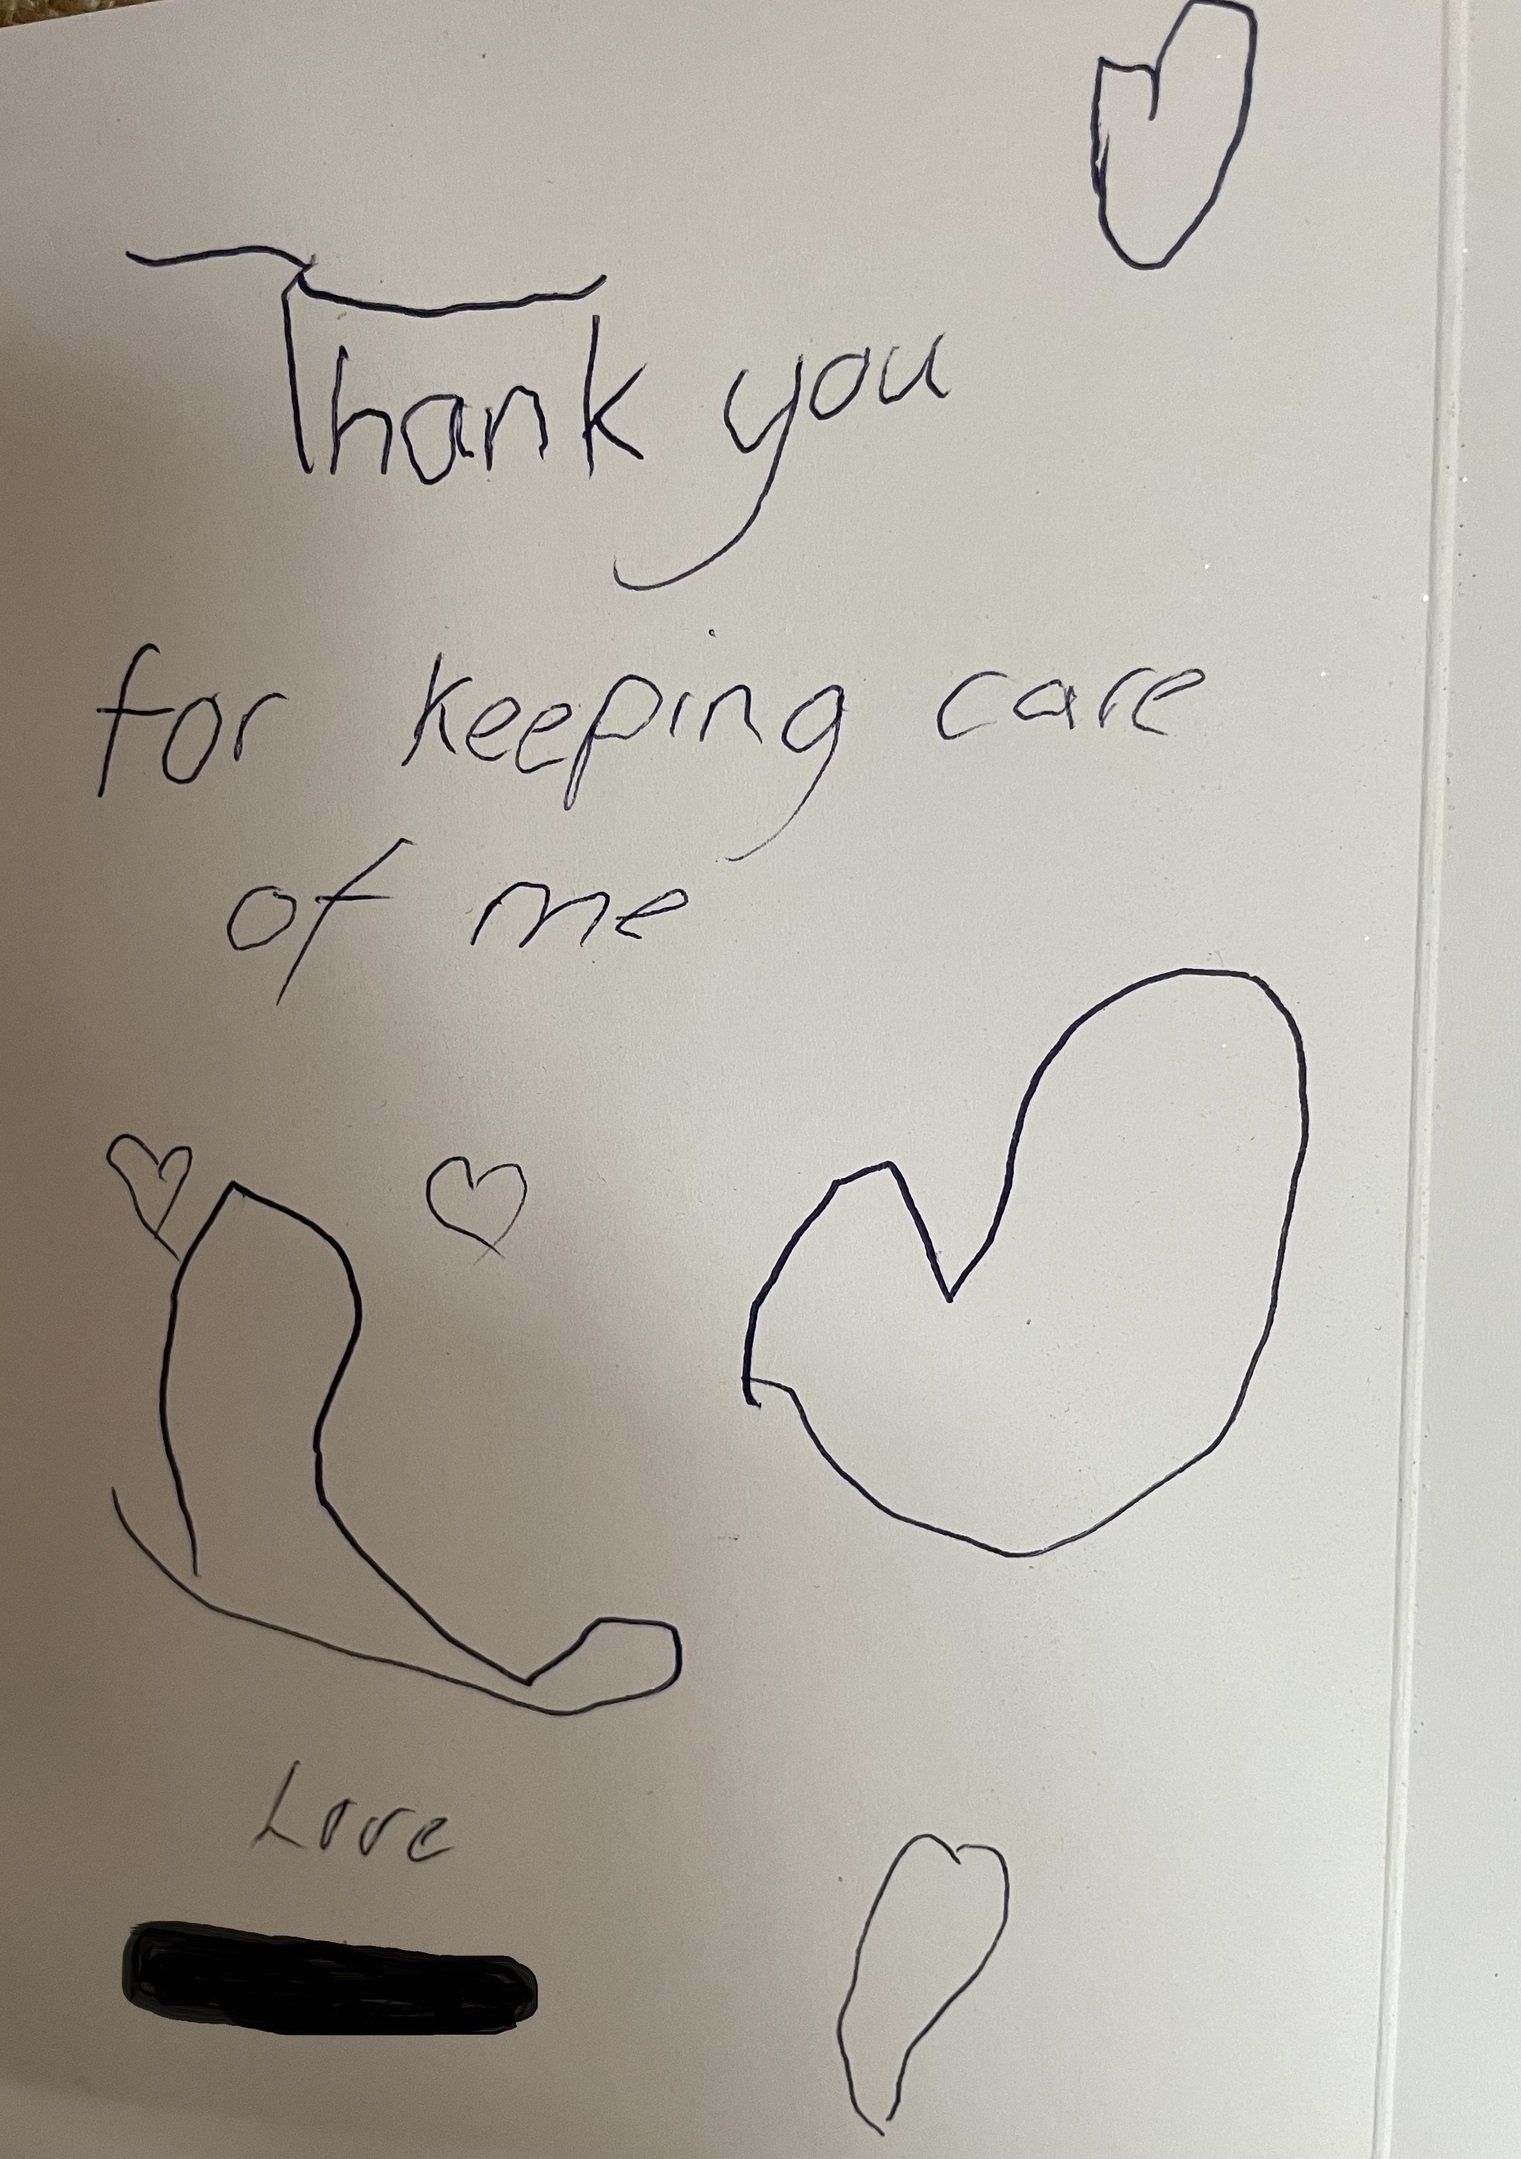 Thank you
for keeping care
of me
Love